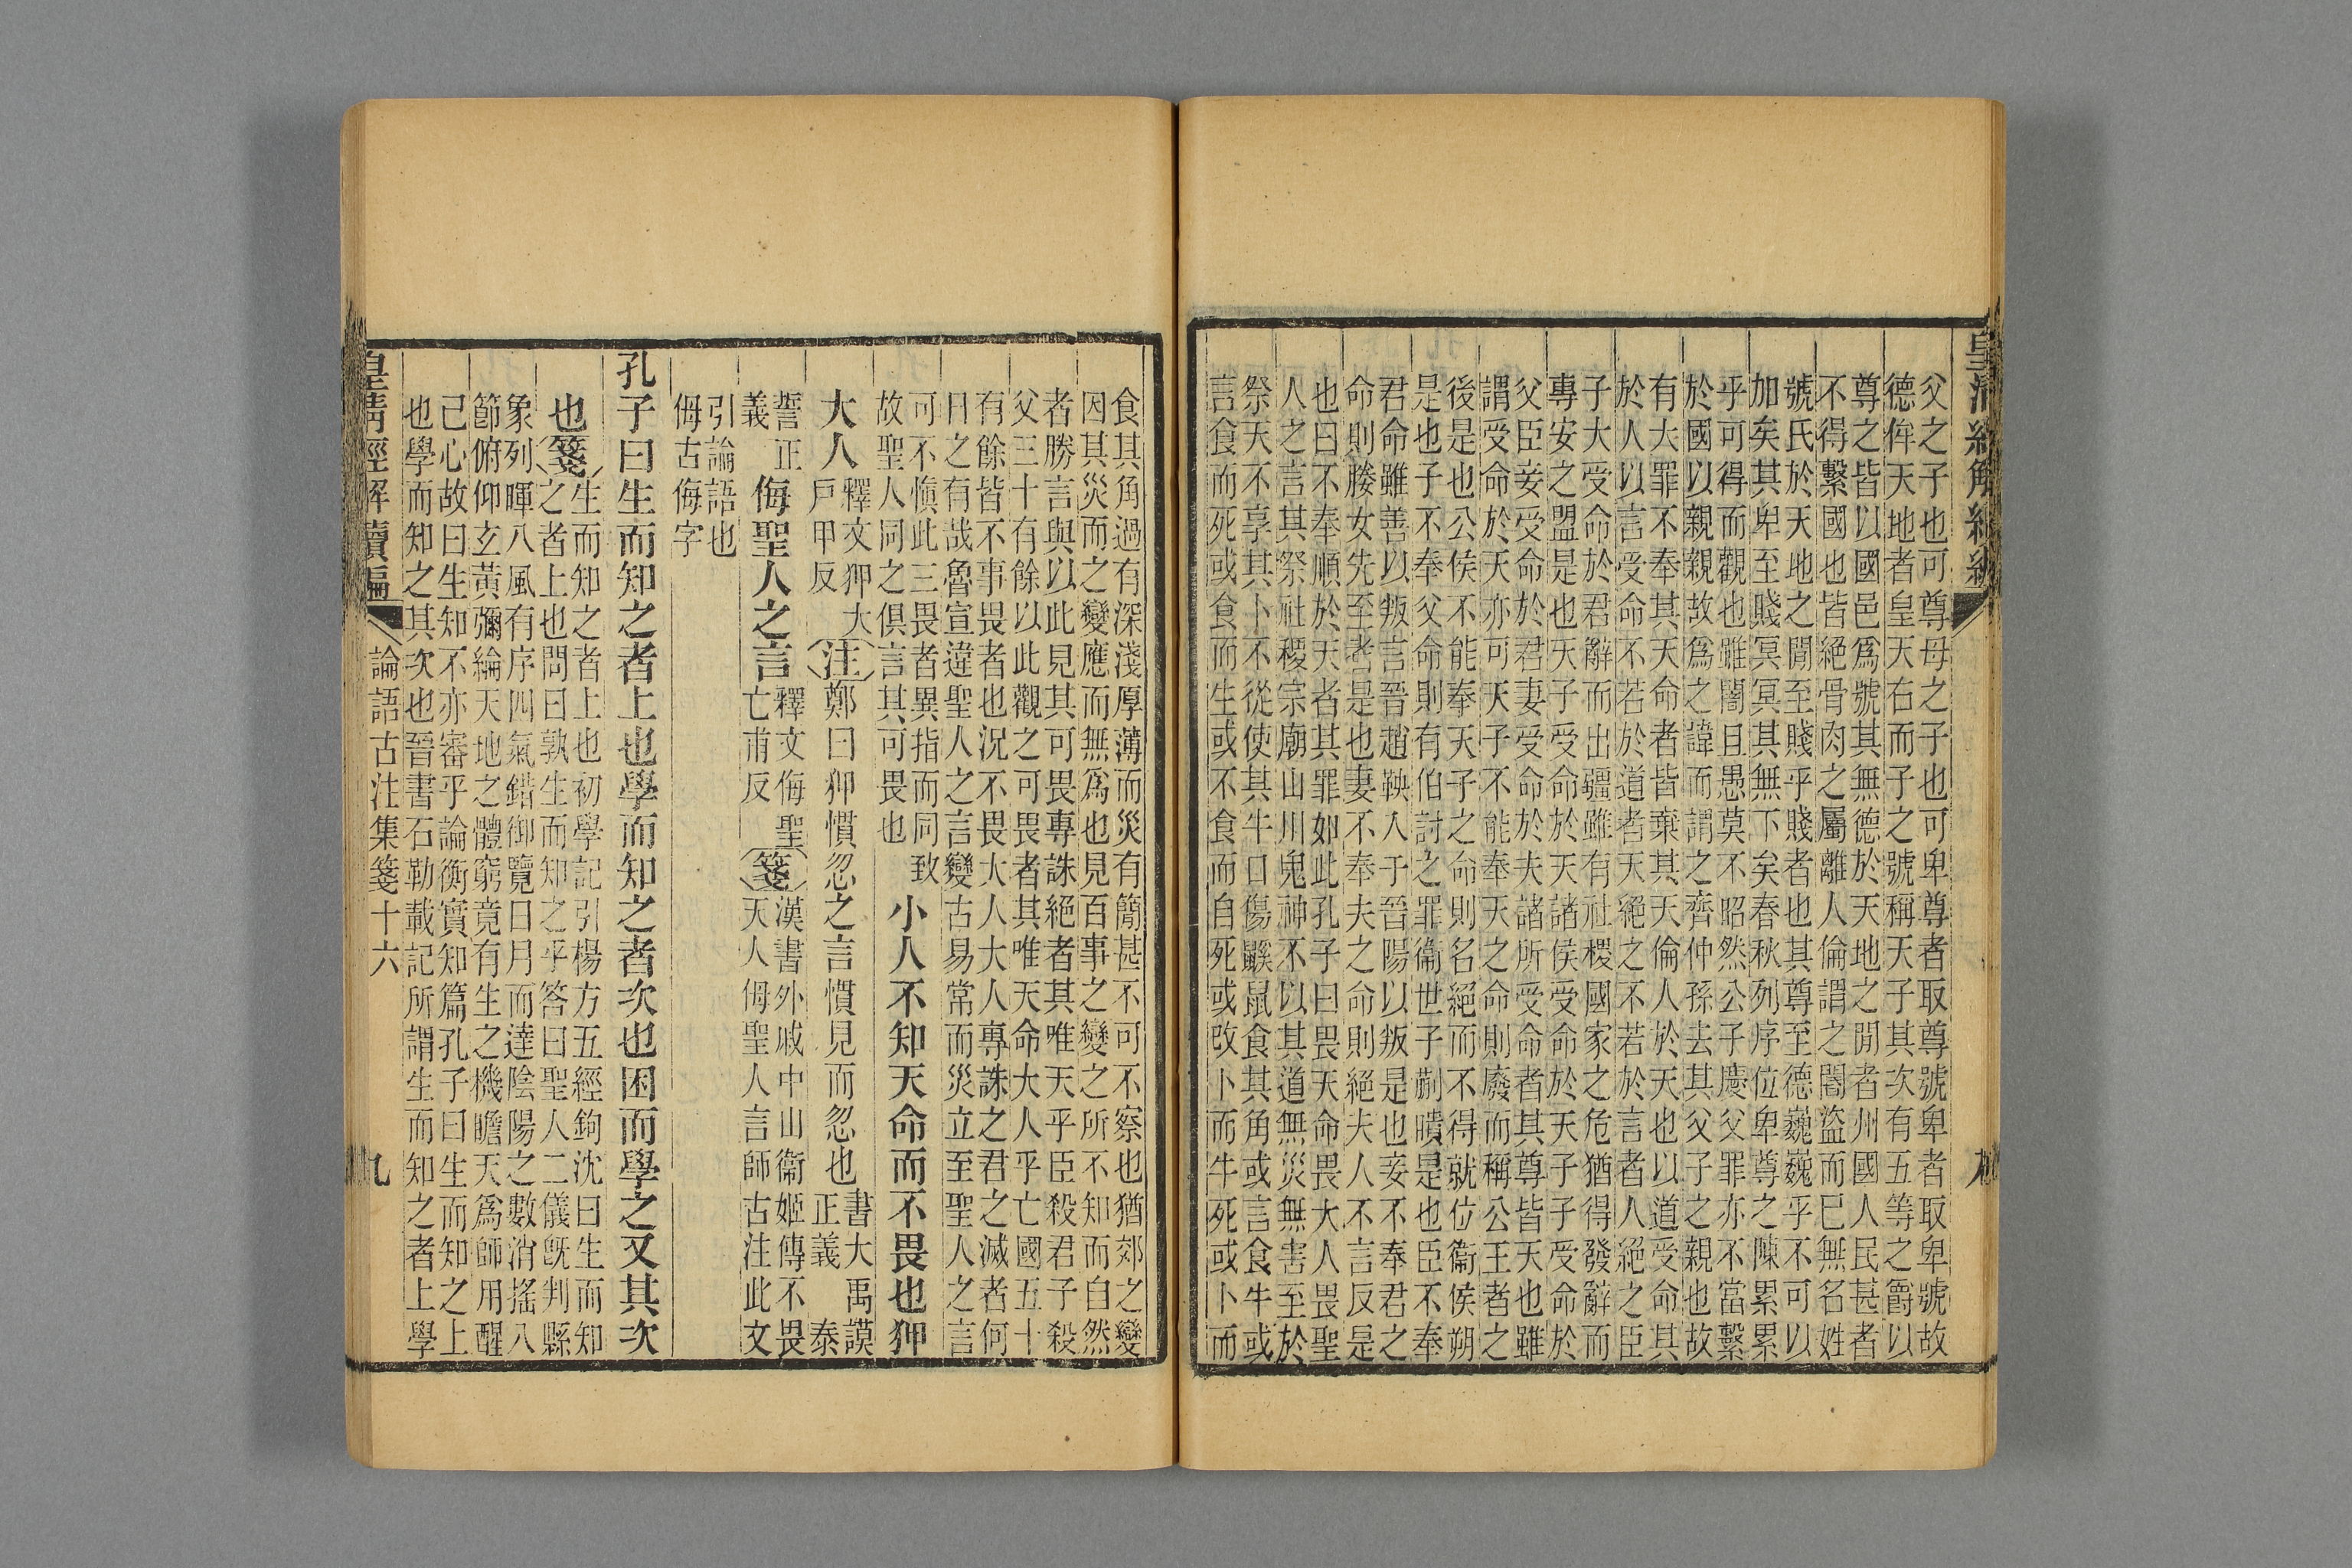 父之子也可尊母之子也可卑尊者取尊號卑者取卑號故
德侔天地者皇天右而子之號稱天子其次有五等之爵以
尊之皆以國邑爲號其無德於天地之閒者州國人民甚者
不得繫國也皆絕骨肉之屬離人倫謂之閽盜而巳無名姓
號氏於天地之閒至賤乎賤者也其尊至德巍巍乎不可以
加矣其卑至賤冥冥其無下矣春秋列序位卑尊之陳累累
乎可得而觀也雖闇且愚莫不昭然公子慶父罪亦不當繫
於國以親親故爲之諱而謂之齊仲孫去其父子之親也故
有大罪不奉其天命者皆棄其天倫人於天也以道受命其
於人以言受命不若於道者天絕之不若於言者人絕之臣
子大受命於君辭而出疆雖有社稷國家之危猶得發辭而
專安之盟是也天子受命於天諸侯受命於天子子受命於
父臣妾受命於君妻受命於夫諸所受命者其尊皆天也雖
謂受命於天亦可天子不能奉天之命則廢而稱公王者之
後是也公侯不能奉天子之命則名絕而不得就位衞侯朔
是也子不奉父命則有伯討之罪衞世子蒯聵是也臣不奉
君命雖善以叛言晉趙鞅入于晉陽以叛是也妾不奉君之
命則媵女先至者是也妻不奉夫之命則絕夫人不言反是
也曰不奉順於天者其罪如此孔子曰畏天命畏大人畏聖
人之言其祭社稷宗廟山川鬼神不以其道無災無害至於
祭天不享其卜不從使其牛口傷鼷鼠食其角或言食牛或
言食而死或食而生或不食而自死或改卜而牛死或卜而
食其角過有深淺厚薄而災有簡甚不可不察也猶郊之變
因其災而之變應而無爲也見百事之變之所不知而自然
者勝言與以此見其可畏專誅絕者其唯天乎臣殺君子殺
父三十有餘以此觀之可畏者其唯天命大人乎亡國五十
有餘皆不事畏者也況不畏大人大人專誅之君之滅者何
日之有哉魯宣違聖人之言變古易常而災立至聖人之言
可不愼此三畏者異指而同致
故聖人同之俱言其可畏也
小人不知天命而不畏也狎
大人
釋文狎大
戶甲反
注
鄭曰狎慣忽之言慣見而忽也
書大禹謨
正義泰
誓正
義
侮聖人之言
釋文侮聖
亡甫反
箋
漢書外戚中山衞姬傳不畏
天人侮聖人言師古注此文
引論語也
侮古侮字
孔子曰生而知之者上也學而知之者次也困而學之又其次
也
箋
生而知之者上也初學記引楊方五經鉤沈曰生而知
之者上也問曰孰生而知之乎答曰聖人二儀旣判縣
象列暉八風有序四氣錯御覽日月而達陰陽之數消搖八
節俯仰玄黃彌綸天地之體窮竟有生之機瞻天爲師用醒
己心故曰生知不亦審乎論衡實知篇孔子曰生而知之上
也學而知之其次也晉書石勒載記所謂生而知之者上學
皇淸經解續編
論語古注集箋十六
九